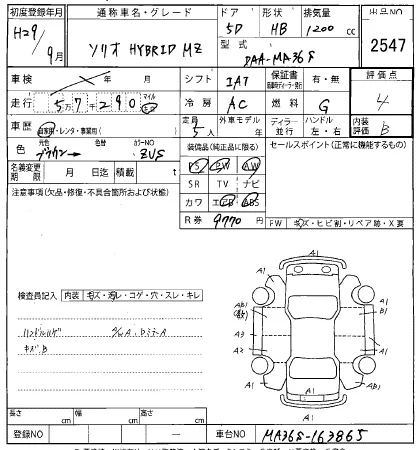 初度登録年月 通称車名・グレード ドア 形状 排気量 出品NO
H29/9月 ソリオ HYBRID MZ 5D HB 1200 cc 2547
型式 DAA-MA36S
車検 年 月 シフト IAT 保証書 有・無 評価点
走行 57290 マイル 冷房 AC 燃料 G 4
車歴 自家用・レンタ・事業用( ) 定員 5人 外車モデル 年 ディーラー 並行 ハンドル 左・右 内装評価 B
色 元色 ブラウン 色替 カラーNO ZUS 装備品(純正品に限る) セールスポイント(正常に機能するもの)
名義変更期限 月 日迄 積載 t PS PW AW
注意事項(欠品・修復・不具合箇所および状態) SR TV ナビ
カワ エアB ABS
R券 9770 FW キズ・ヒビ割・リペア跡・X要
A1
A1 A1
検査員記入 内装 キズ・汚レ・コゲ・穴・スレ・キレ AB1 B1
ハンドルハゲ A/W A.DミラーA A3
キズB A2 A1
A1 AB1
A1
長さ cm 幅 cm 高さ cm
登録NO — 車台NO MA36S-163865